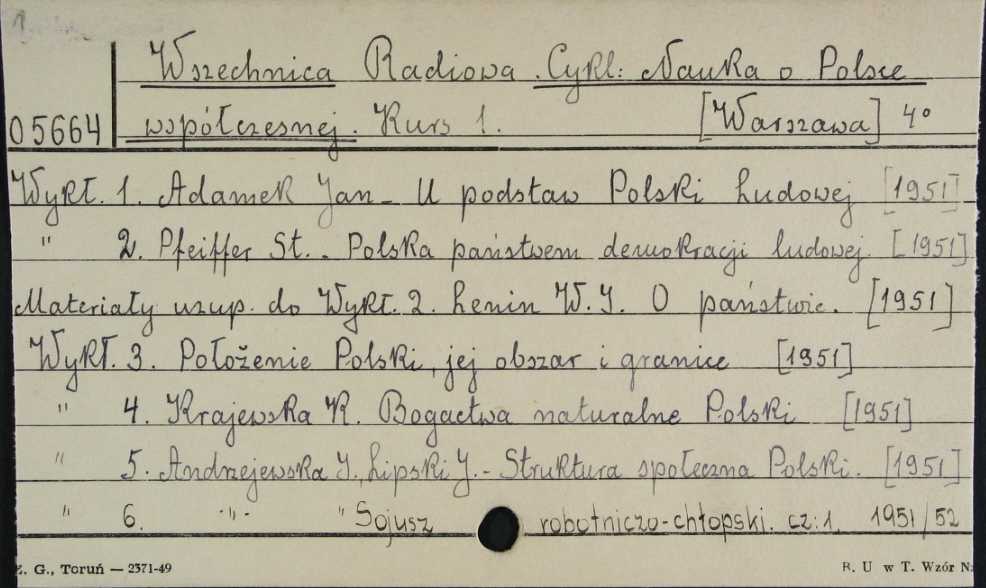 1
Wszechnica Radiowa. Cykl: Nauka o Polsce
05664 współczesnej. Kurs 1. [Warszawa] 4°
Wykł. 1. Adamek Jan - U podstaw Polski Ludowej [1951]
" 2. Pfeiffer St. - Polska państwem demokracji ludowej. [1951]
Materiały uzup. do Wykł. 2. Lenin W. I. O państwie. [1951]
Wykł. 3. Położenie Polski, jej obszar i granice [1951]
" 4. Krajewska K. Bogactwa naturalne Polski [1951]
" 5. Andrzejewska J., Lipski J. - Struktura społeczna Polski. [1951]
" 6. -"- " Sojusz robotniczo-chłopski. cz. 1. 1951/52
Z. G., Toruń — 2371-49 B. U w T. Wzór N